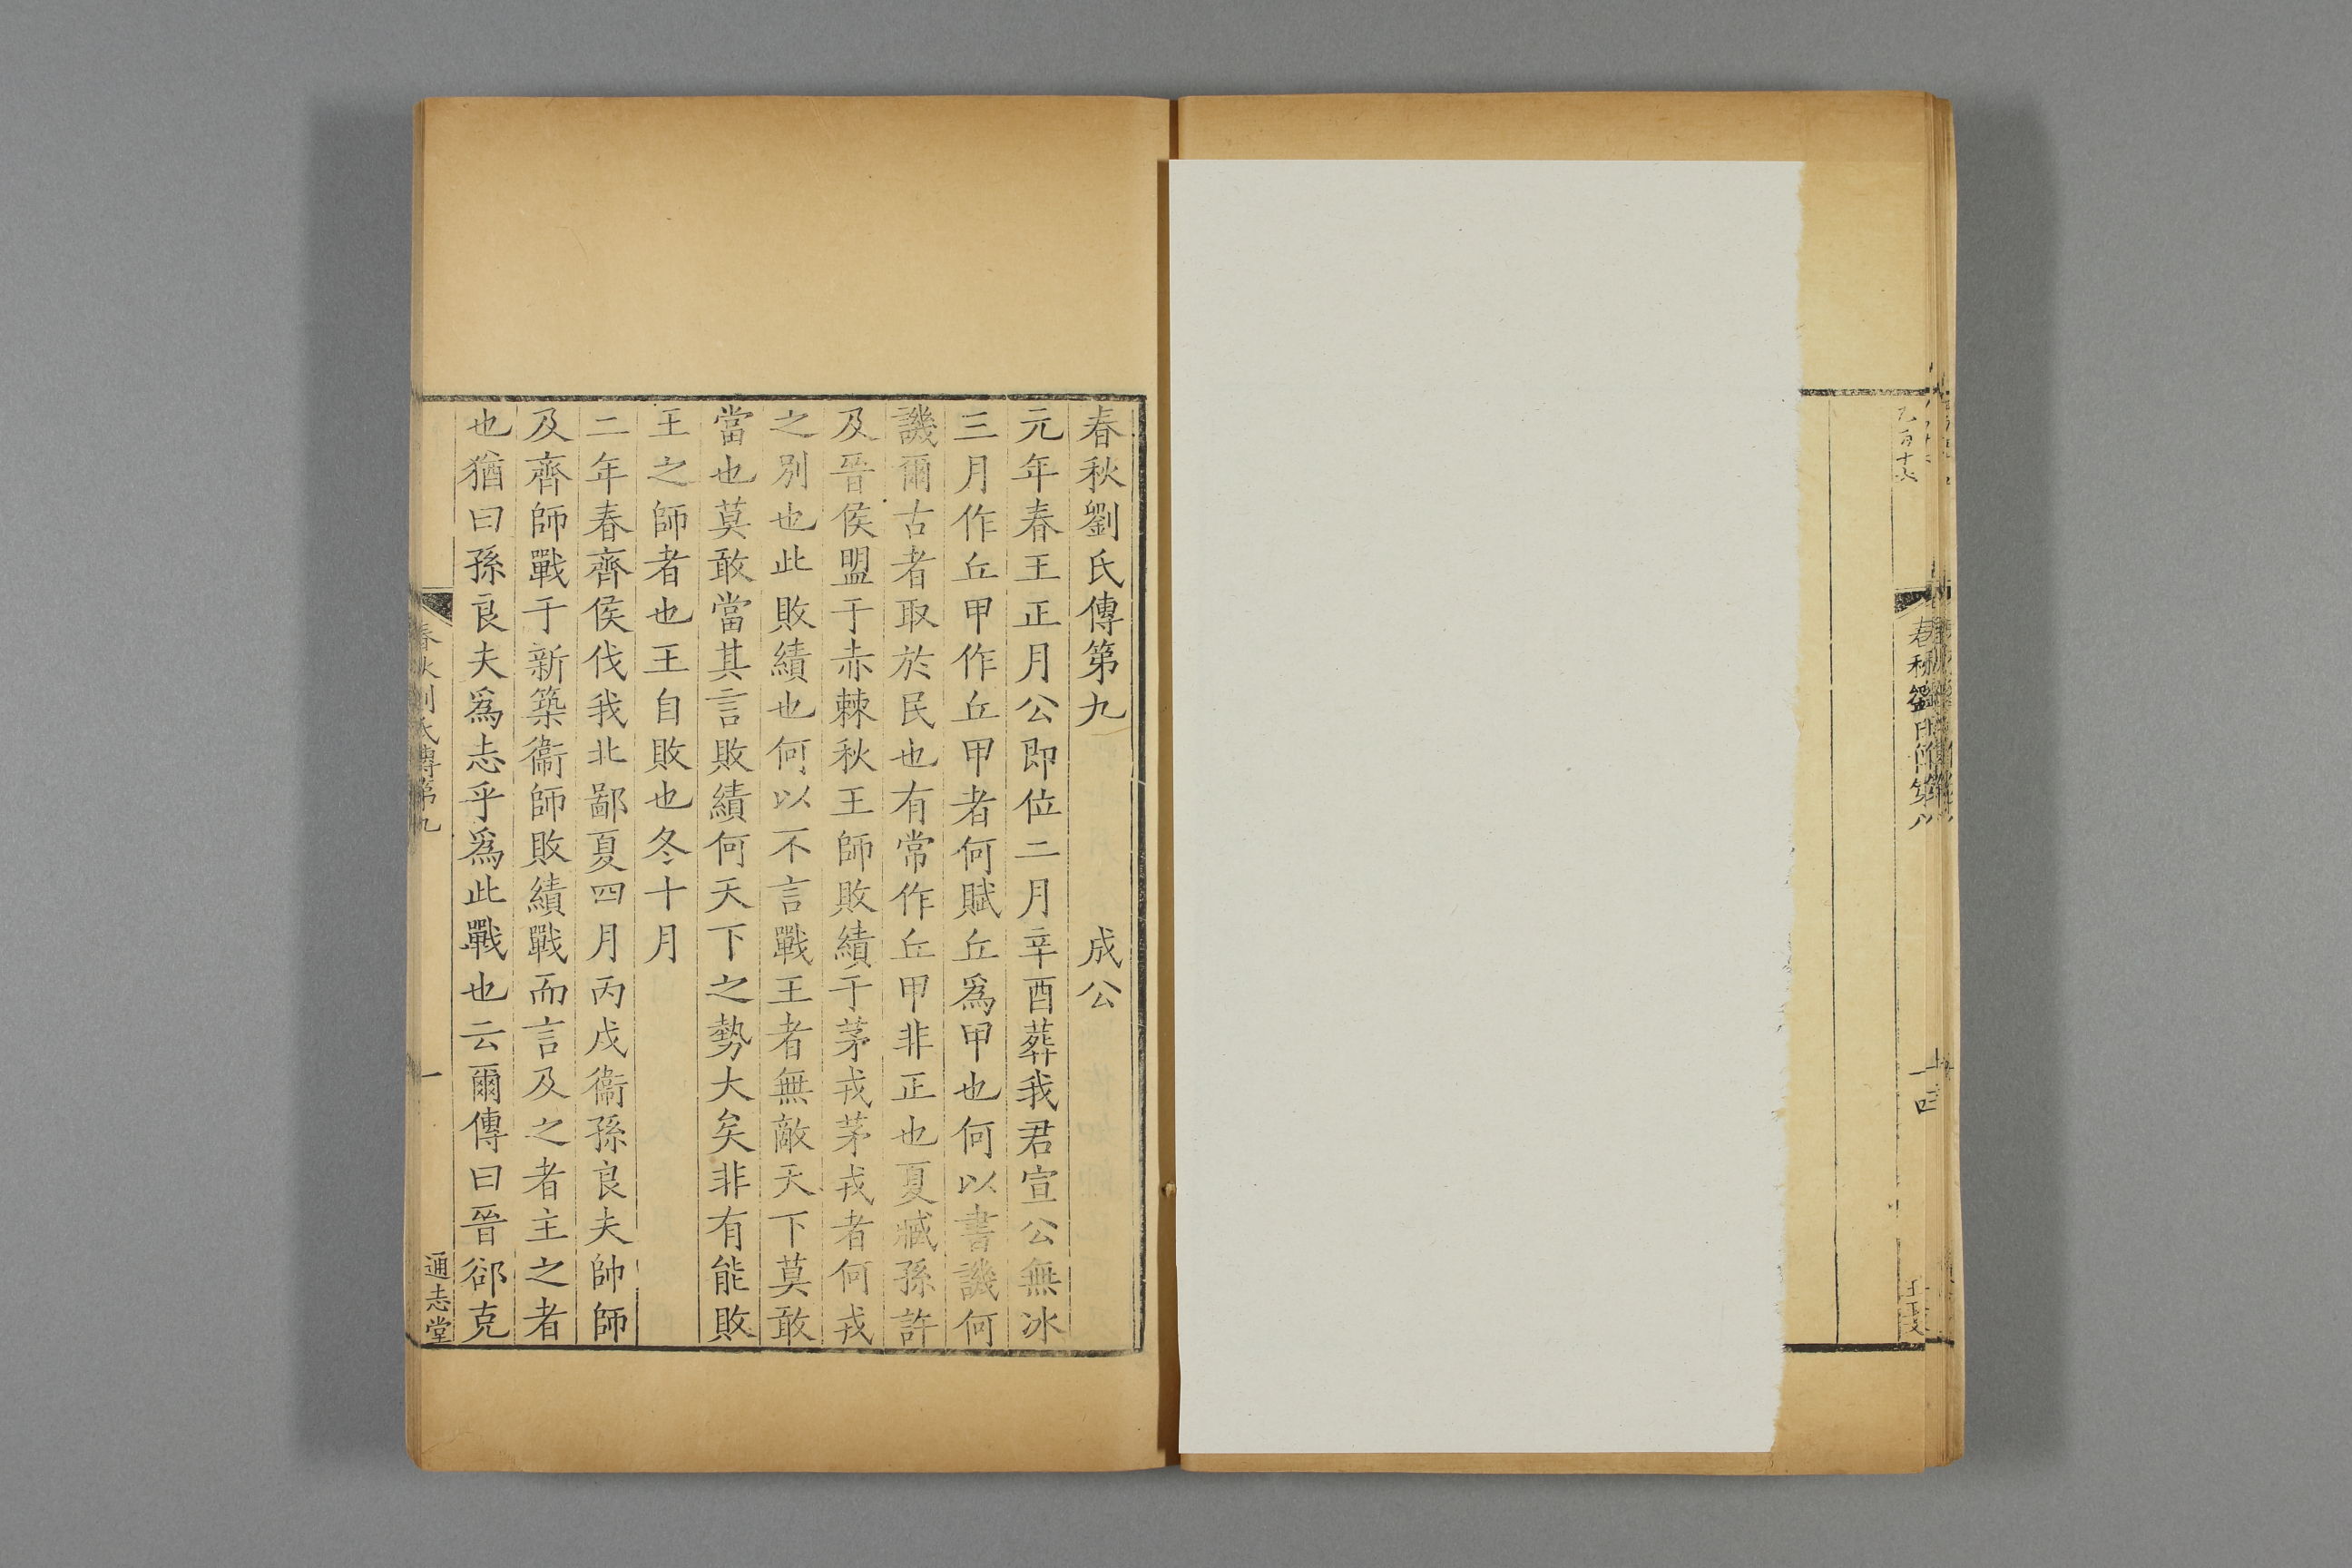 春秋劉氏傳第九 成公
元年春王正月公即位二月辛酉葬我君宣公無冰
三月作丘甲作丘甲者何賦丘爲甲也何以書譏何
譏爾古者取於民也有常作丘甲非正也夏臧孫許
及晉侯盟于赤棘秋王師敗績于茅戎茅戎者何戎
之别也此敗績也何以不言戰王者無敵天下莫敢
當也莫敢當其言敗績何天下之勢大矣非有能敗
王之師者也王自敗也冬十月
二年春齊侯伐我北鄙夏四月丙戌衞孫良夫帥師
及齊師戰于新築衞師敗績戰而言及之者主之者
也猶曰孫良夫爲志乎爲此戰也云爾傳曰晉郤克
春秋劉氏傳第九
一
通志堂